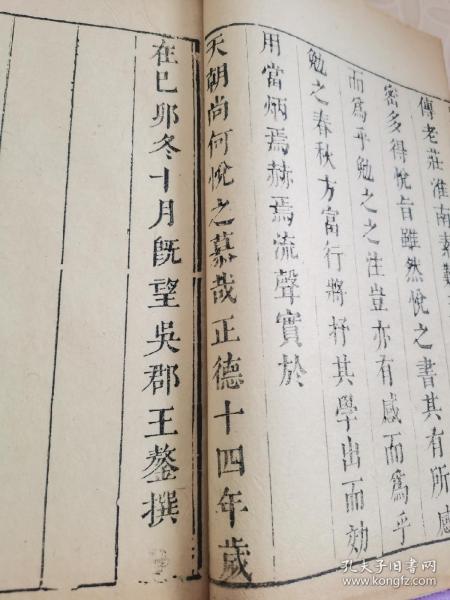 傳老莊淮南素
密多得悅旨雖然悅之書其有所感
而爲乎勉之之注豈亦有感而爲乎
勉之春秋方富行將抒其學出而効
用當炳焉赫焉流聲實於
天朝尚何悅之慕哉正德十四年歲
在巳卯冬十月旣望吳郡王鏊撰
孔夫子旧书网
www.kongfz.com